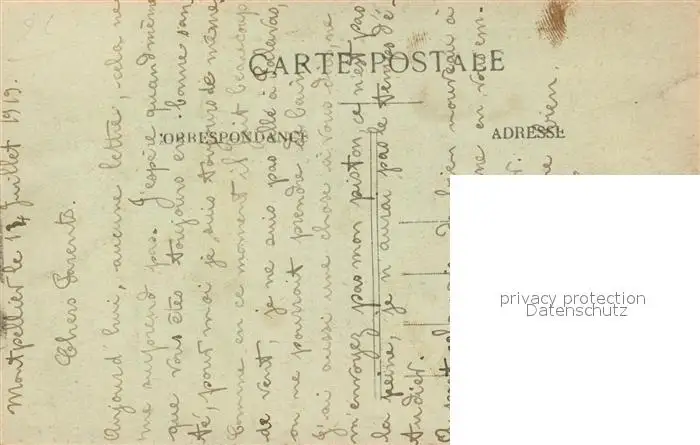 CARTE POSTALE
CORRESPONDANCE
ADRESSE
Montpellier le 14 Juillet 1919.
Chers Parents.
Aujourd'hui, aucune lettre, cela ne
me surprend pas. J'espère quand même
que vous êtes toujours en bonne san-
té, pour moi je suis toujours de même
Comme en ce moment il fait beaucoup
de vent, je ne suis pas allé à Palavas,
on ne pourrait prendre de bain.
J'ai aussi une chose à vous dire, ne
m'envoyez pas mon piston, ce n'est pas
la peine, je n'aurai pas le temps d'é-
tudier.
rien de nouveau à
en vous em-
bien.
privacy protection
Datenschutz